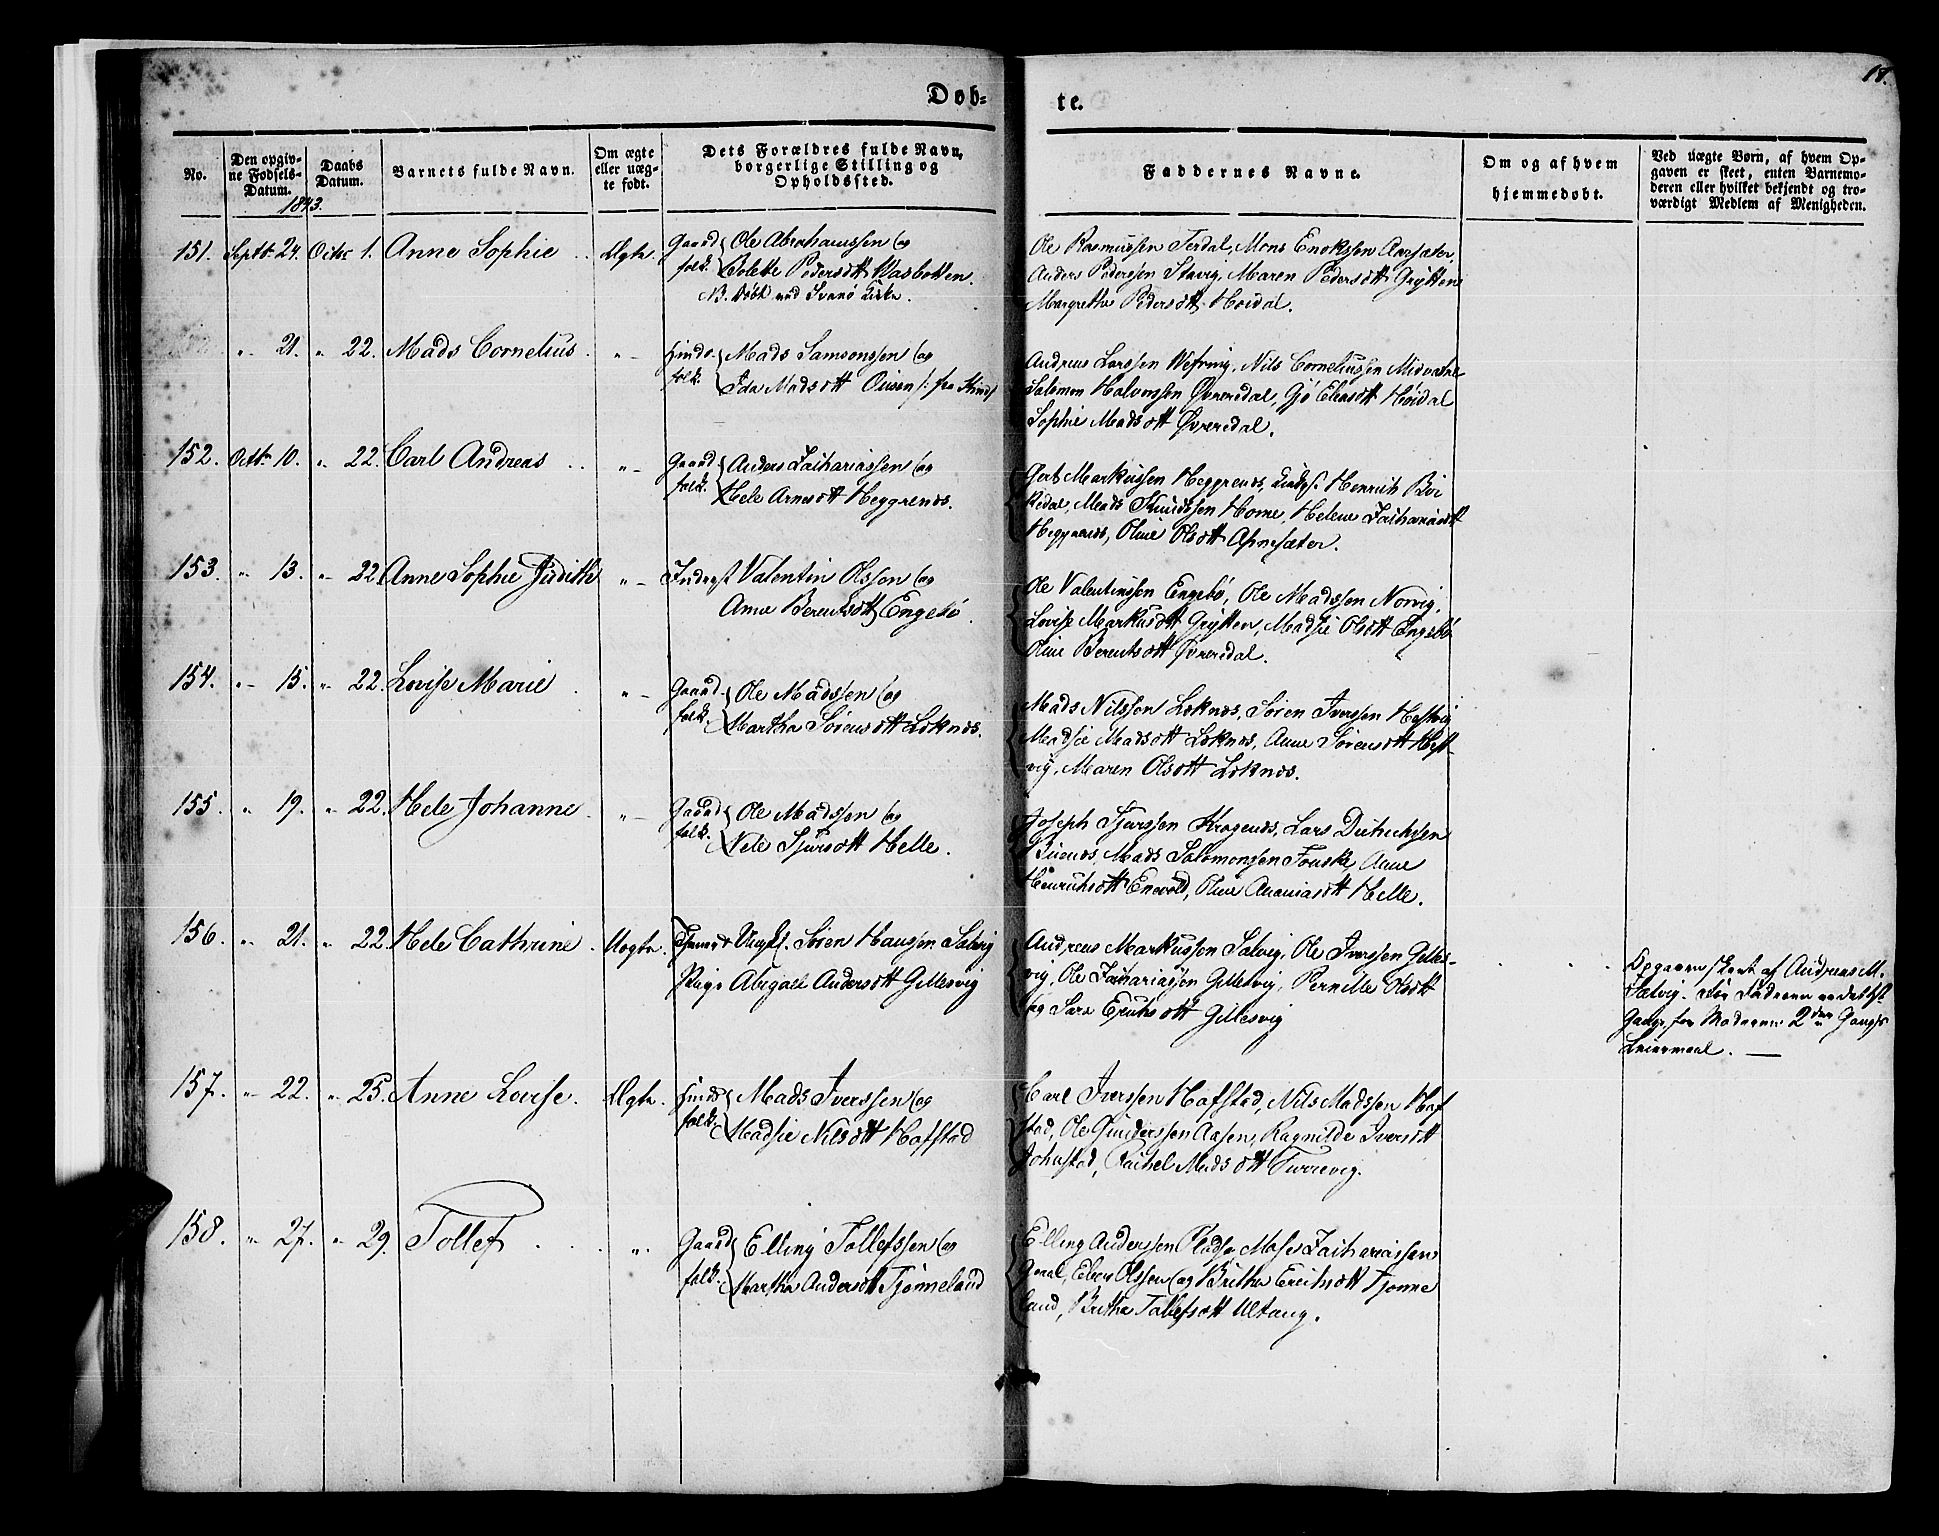 Døb-
te.
18.
No.
Den opgiv-
ne Fødsels-
Datum.
Daabs
Datum.
Barnets fulde Navn.
Om ægte
eller uæg-
te født.
Dets Forældres fulde Navn,
borgerlige Stilling og
Opholdssted.
Faddernes Navne.
Om og af hvem
hjemmedøbt.
Ved uægte Børn, af hvem Op-
gaven er skeet, enten Barnemo-
deren eller hvilket bekjendt og tro-
værdigt Medlem af Menigheden.
1843.
151. Septbr 24. Octbr 1. Anne Sophie Ægte. Gaard folk. Ole Abrahamssen og
Bolette Pedersdtt Vasbotten.
NB. Døbt ved Svanø Kirke.
Ole Rasmussen Terdal, Mons Enokssen Aarsæter,
Anders Pederssen Stavig, Maren Pedersdtt Grytten
Margrethe Pedersdtt Hoidal.
" 21. " 22. Mads Cornelius. " folk. Mads Samsonssen og
Ida Madsdtt
Andreas Larssen Wefring, Nils Corneliussen
Salomon Halvorssen Øvreredal, Eliasdtt Høidal
Sophie Madsdtt Øvreredal.
152. Octbr 10. " 22. Carl Andreas " Gaard folk. Anders Zachariassen og
Hele Arnesdtt Heggenes.
Markussen Heggenes, Henrich
Mads Knudssen Horne, Helene Zachariasdtt
Heggenes, Oline Olsdtt
153. " 13. " 22. Anne Sophie Judith " Inderst Valentin Olsson og
Anne Berentsdtt Engebø.
Ole Valentinssen Engebø, Ole Madssen Norvig,
Lovise Markusdtt Grytten, Madsie Olsdtt Engebø
Oline Berentsdtt Øvreredal.
154. " 15. " 22. Lovise Marie " Gaard folk. Ole Madssen og
Martha Sørensdtt Løknes.
Mads Nilsson Løknes, Søren Iverssen Hestvig
Madsie Madsdtt Løknes, Anne Sørensdtt Hest-
vig, Maren Olsdtt Løknes.
155. " 19. " 22. Hele Johanne. " Gaard folk. Ole Madssen og
Nele Sjursdtt Helle.
Joseph Sjurssen Krogenes, Lars Diderichsen
Buenes, Mads Salomonsen Fouske, Anne
Henrichsdtt Enevold, Oline Ananiasdtt Helle.
156. " 21. " 22. Hele Cathrine. Uægte. Ungk. Søren Hansen Salvig
Pige Abigael Andersdtt Gillesvig
Andreas Markussen Salvig, Ole Iverssen Gilles-
vig, Ole Zachariassen Gillesvig, Pernille Olsdtt
og Sara Erichsdtt Gillesvig
Opgaven skeet af Andreas M.
Salvig. For Faderen er det 1ste
Gangs, for Moderen 2den Gangs
Leiermaal. —
157. " 22. " 25. Anne Lovise. Ægte. folk. Mads Iverssen og
Madsie Nilsdtt Hafstad
Carl Iverssen Hafstad, Nils Madssen Haf
stad, Ole Gunderssen Aasen, Ragnilde Iversdtt
Johnstad, Rachel Madsdtt Turrevig.
158. " 27. " 29. Tollef " Gaard folk. Elling Tollefssen og
Martha Andersdtt Tjønneland
Elling Anderssen Moses Zachariassen
Olssen og Brithe Erichsdtt Tjønne
land, Brithe Tollefsdtt Utvang.